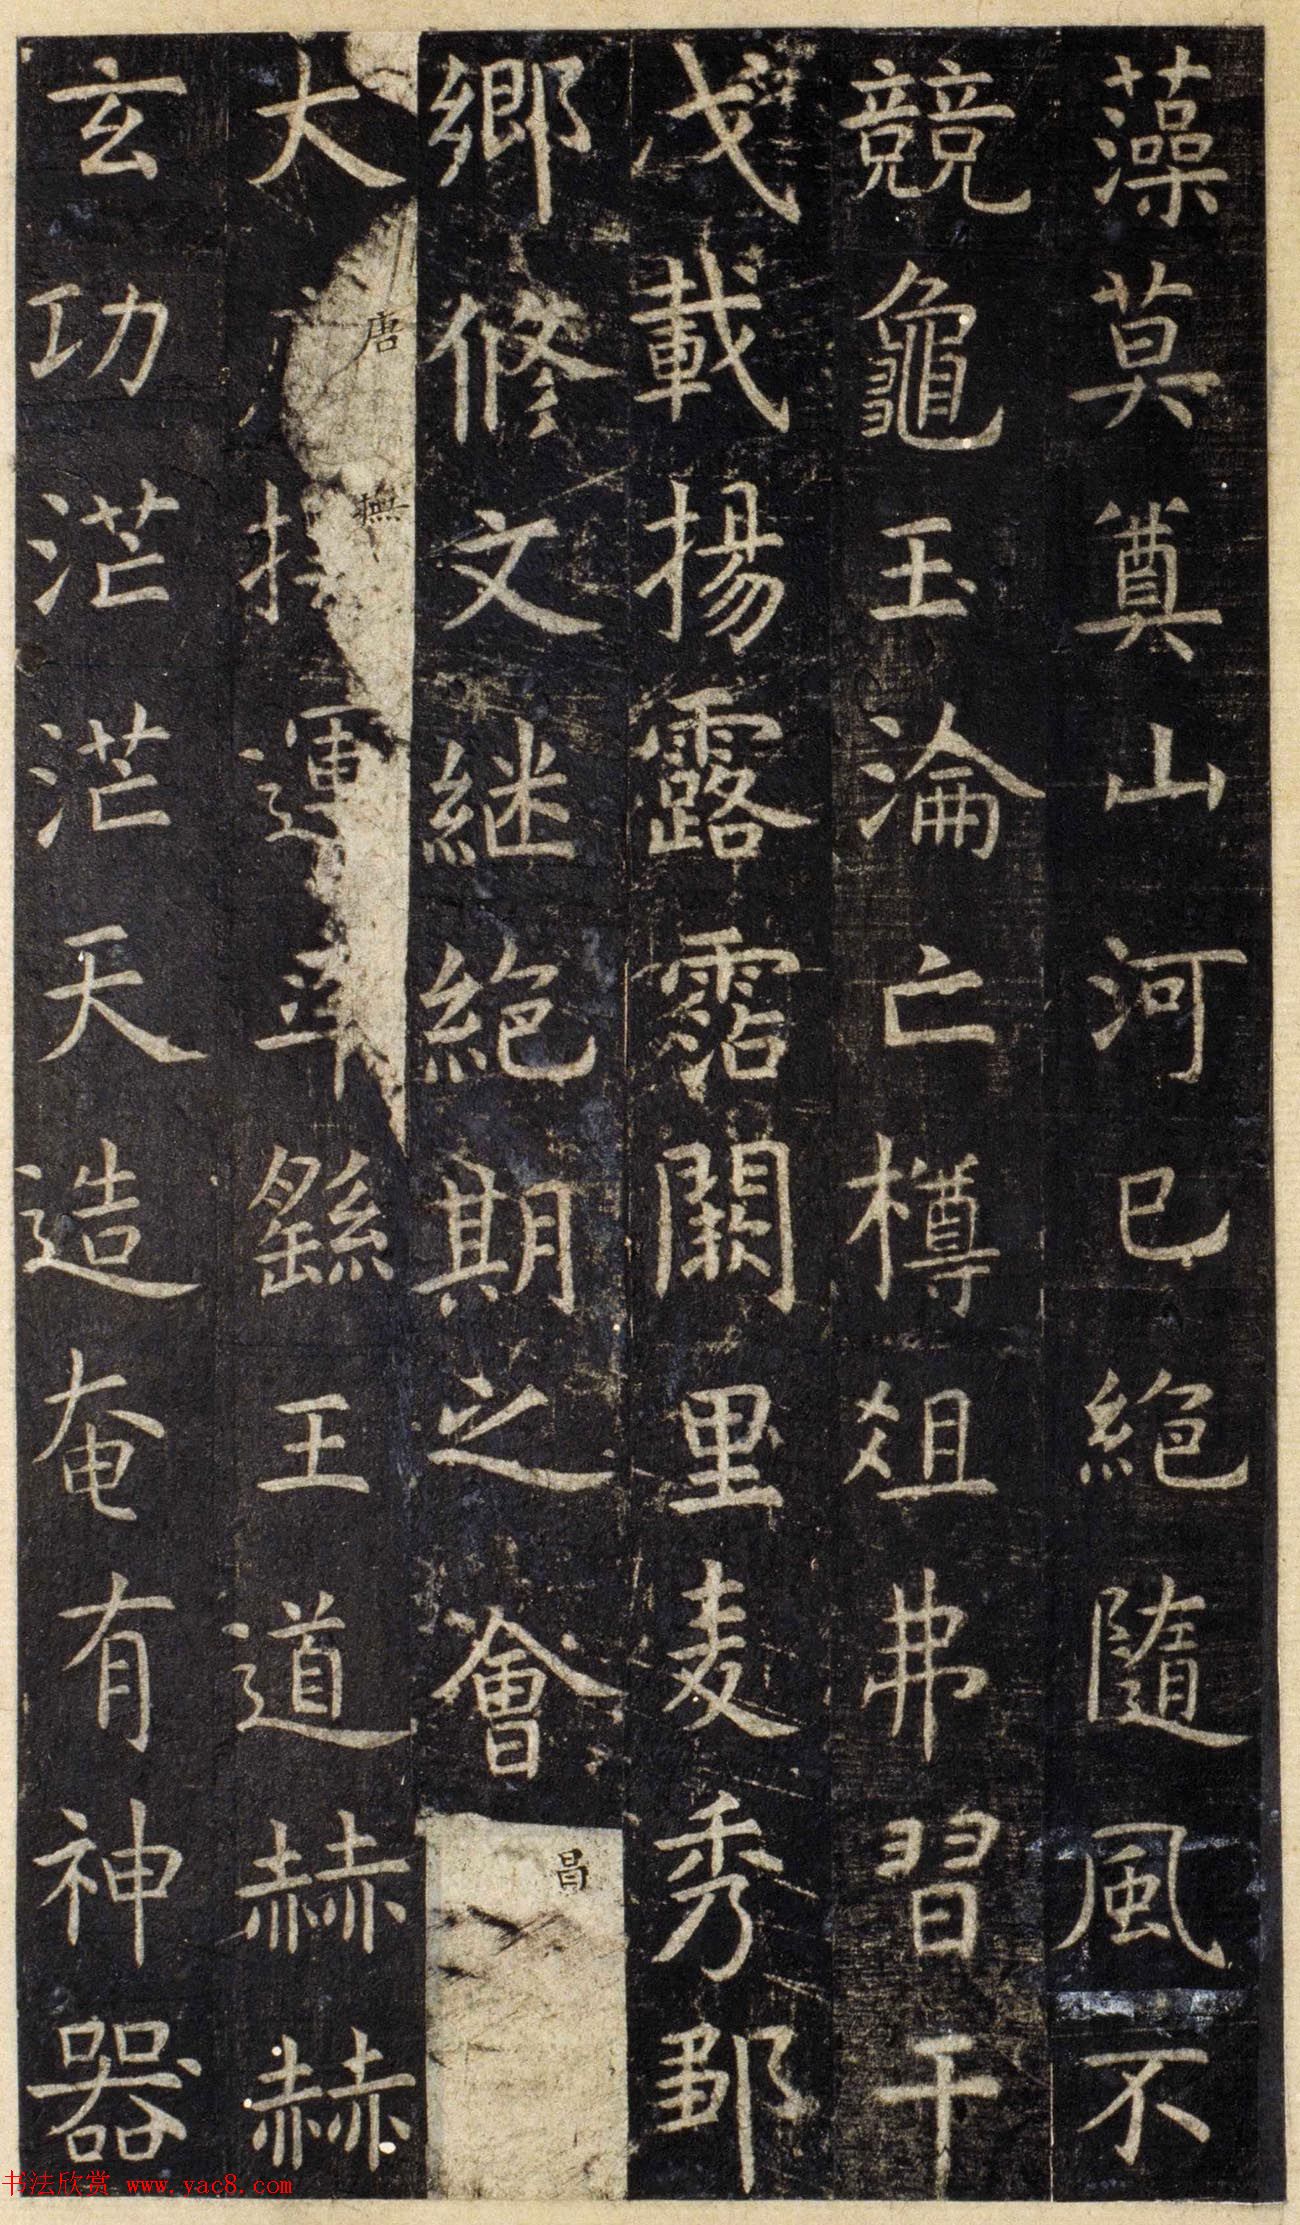 藻莫奠山河已絕隨風不
競龜玉淪亡樽俎弗習干
戈載揚露霑闕里麦秀鄒
鄉修文継絕期之會昌
大唐撫運率繇王道赫赫
玄功茫茫天造奄有神器
书法欣赏 www.yac8.com